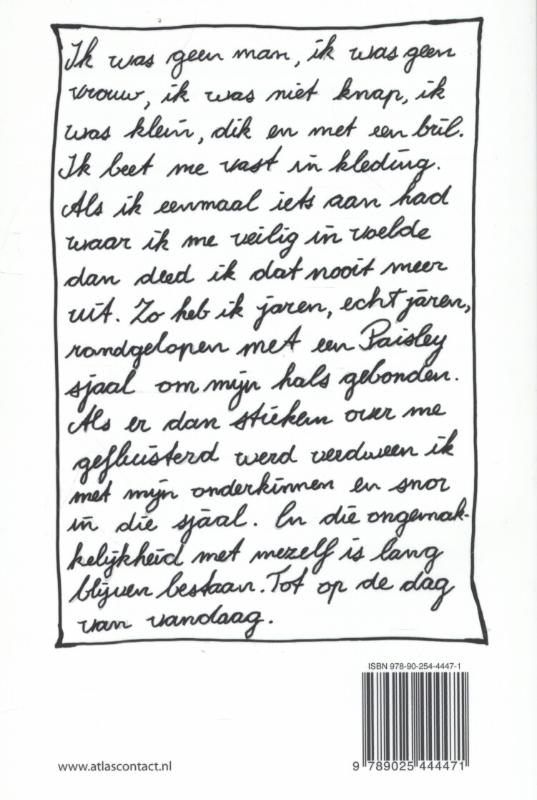 Ik was geen man, ik was geen
vrouw, ik was niet knap, ik
was klein, dik en met een bril.
Ik beet me vast in kleding.
Als ik eenmaal iets aan had
waar ik me veilig in voelde
dan deed ik dat nooit meer
uit. Zo heb ik jaren, echt jaren,
rondgelopen met een Paisley
sjaal om mijn hals gebonden.
Als er dan stiekem over me
gefluisterd werd verdween ik
met mijn onderkinnen en snor
in die sjaal. En die ongemak-
kelijkheid met mezelf is lang
blijven bestaan. Tot op de dag
van vandaag.
ISBN 978-90-254-4447-1
9 789025 444471
www.atlascontact.nl